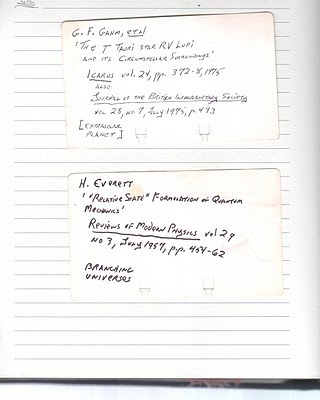 G. F. Gahm, et al
'The T Tauri star RV Lupi
and its Circumstellar Surroundings'
Icarus vol. 24, pp. 372-8, 1975
also:
Journal of the British Interplanetary Society
vol. 28, no. 7, July 1975, p. 493
[Extrasolar
Planet]
H. Everett
'"Relative State" Formulation of Quantum
Mechanics'
Reviews of Modern Physics vol 29
no 3, July 1957, pp. 454-62
Branching
Universes